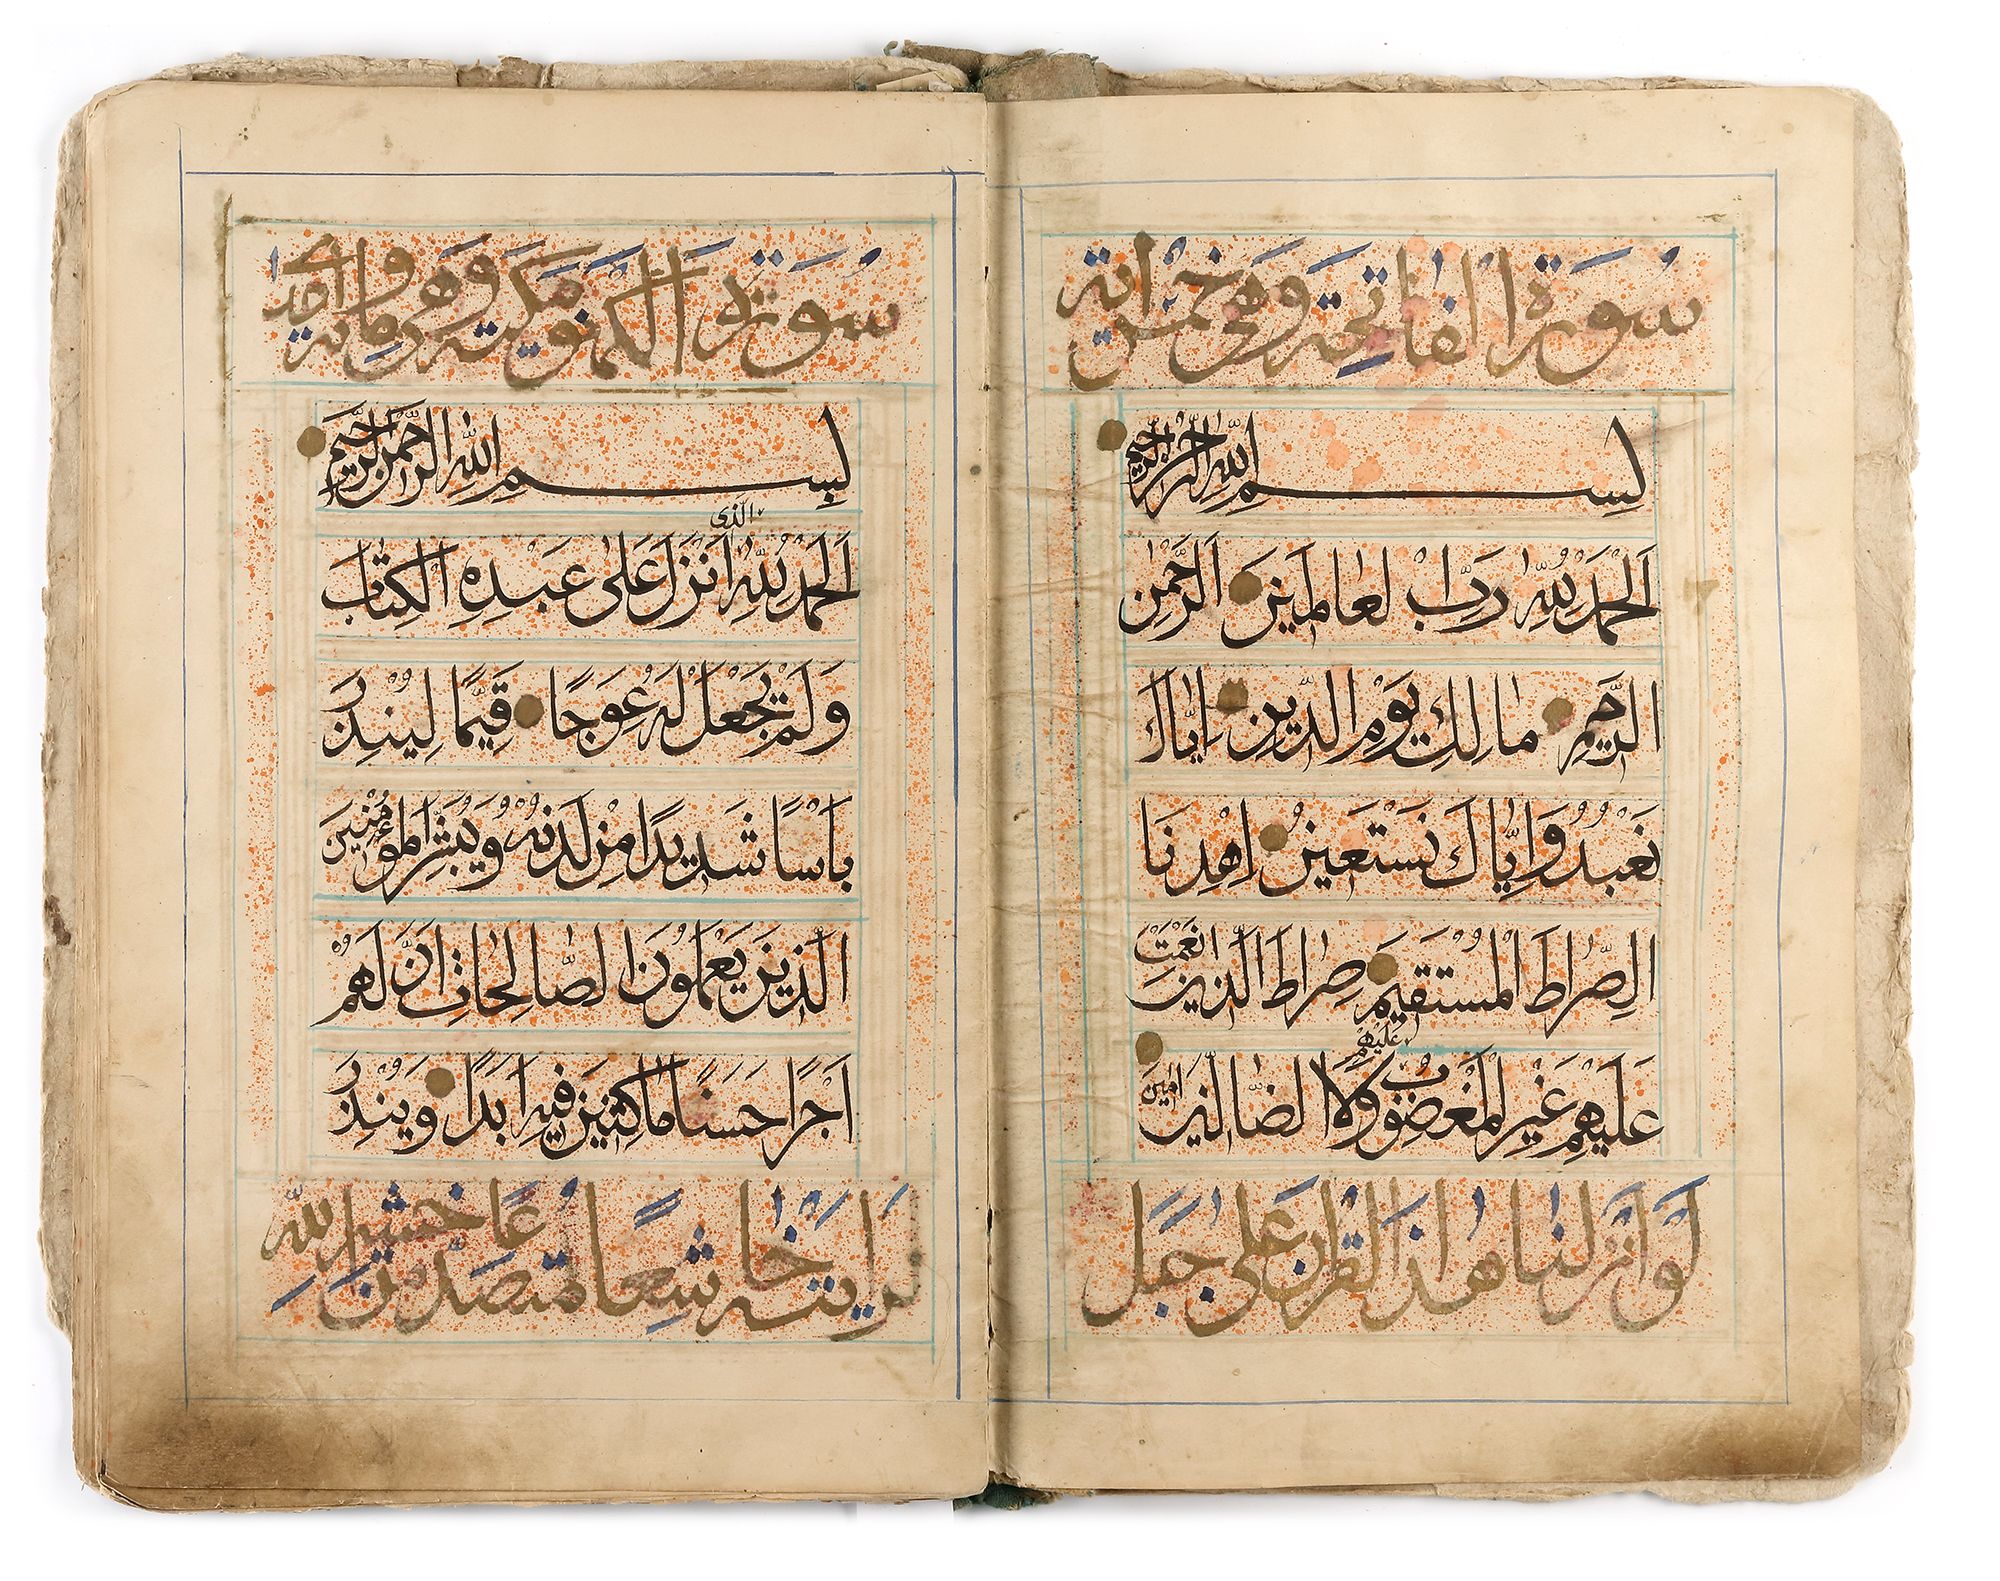 سورة الفاتحة وهي خمس اية
بسم الله الرحمن الرحيم
الحمد لله رب العالمين الرحمن
الرحيم مالك يوم الدين اياك
نعبد واياك نستعين اهدنا
الصراط المستقيم صراط الذين انعمت
عليهم غير المغضوب عليهم ولا الضالين امين
لو انزلنا هذا القران على جبل
سورة الكهف مكية وهي مائة واحدى
بسم الله الرحمن الرحيم
الحمد لله الذي انزل على عبده الكتاب
ولم يجعل له عوجا قيما لينذر
باسا شديدا من لدنه ويبشر المؤمنين
الذين يعملون الصالحات ان لهم
اجرا حسنا ماكثين فيه ابدا وينذر
لرايته خاشعا متصدعا من خشية الله